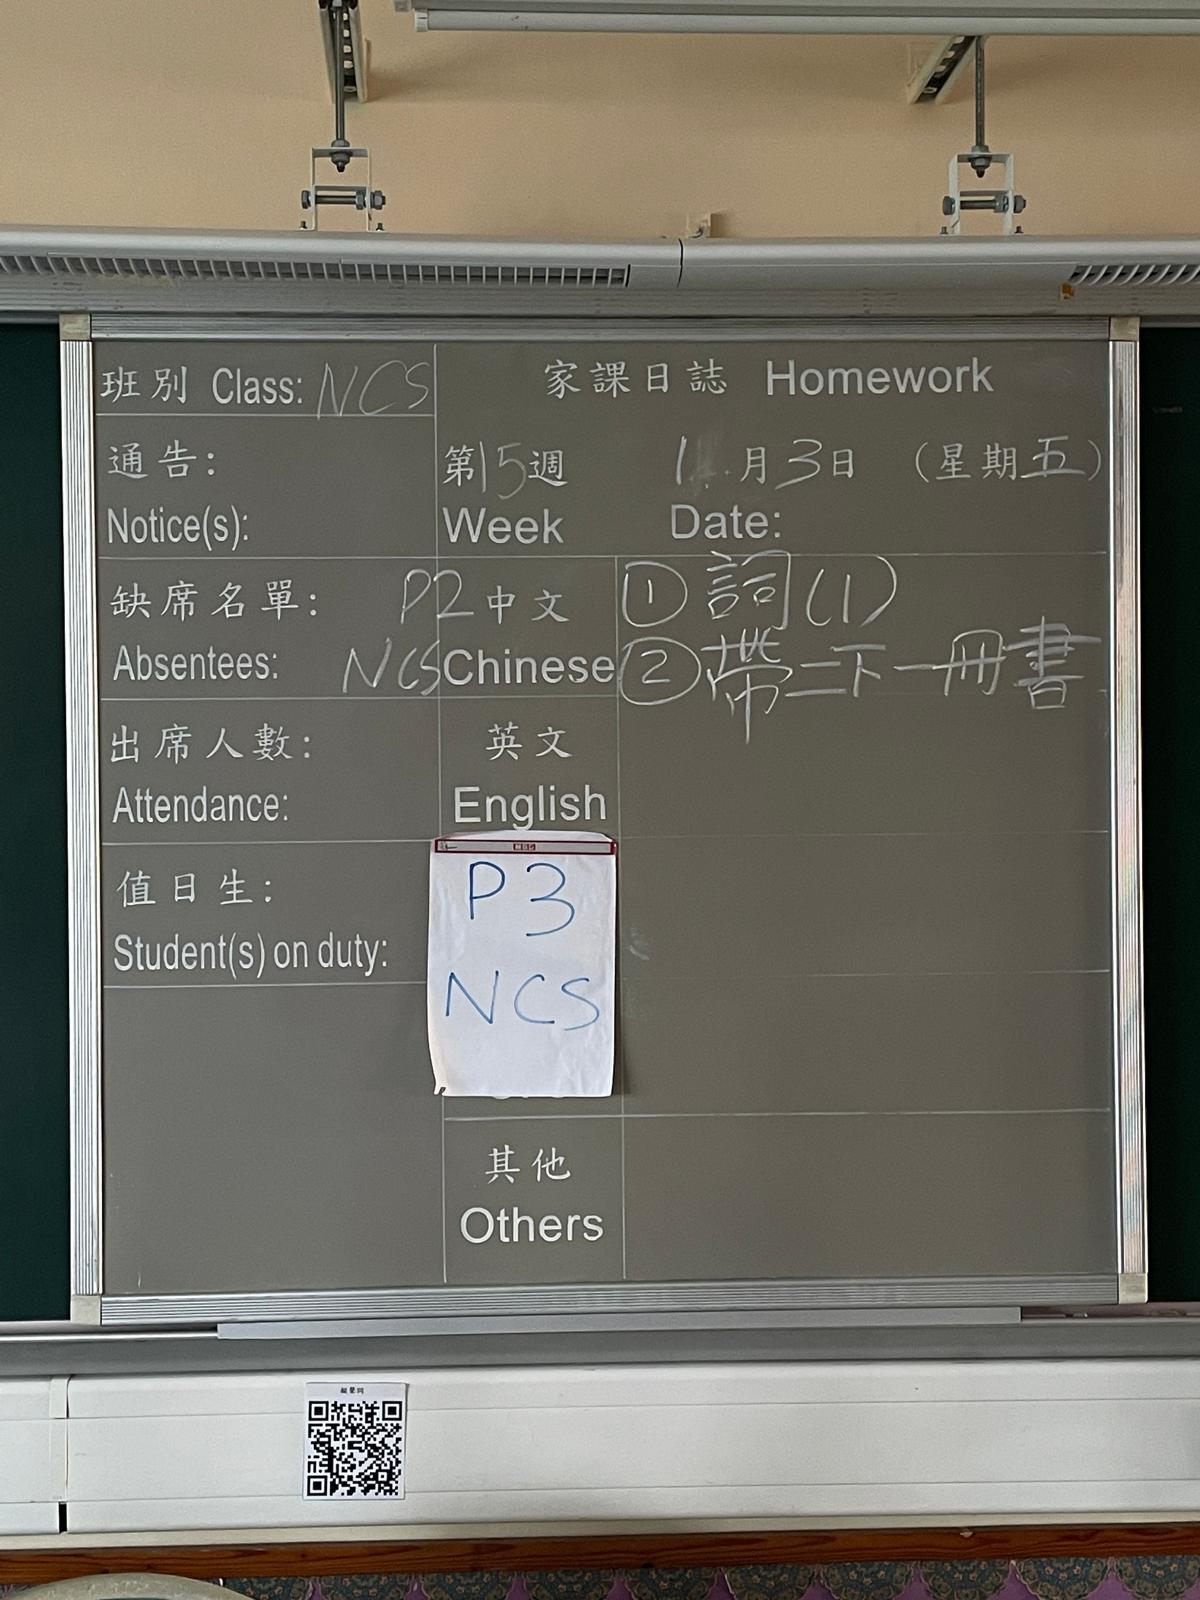 班別 Class: NCS
家課日誌 Homework
通告:
Notice(s):
第15週 1 月 3 日 (星期五)
Week Date:
缺席名單:
Absentees:
P2
NCS
中文
Chinese
① 詞(1)
② 帶二下一冊書
出席人數:
Attendance:
英文
English
值日生:
Student(s) on duty:
P3
NCS
其他
Others